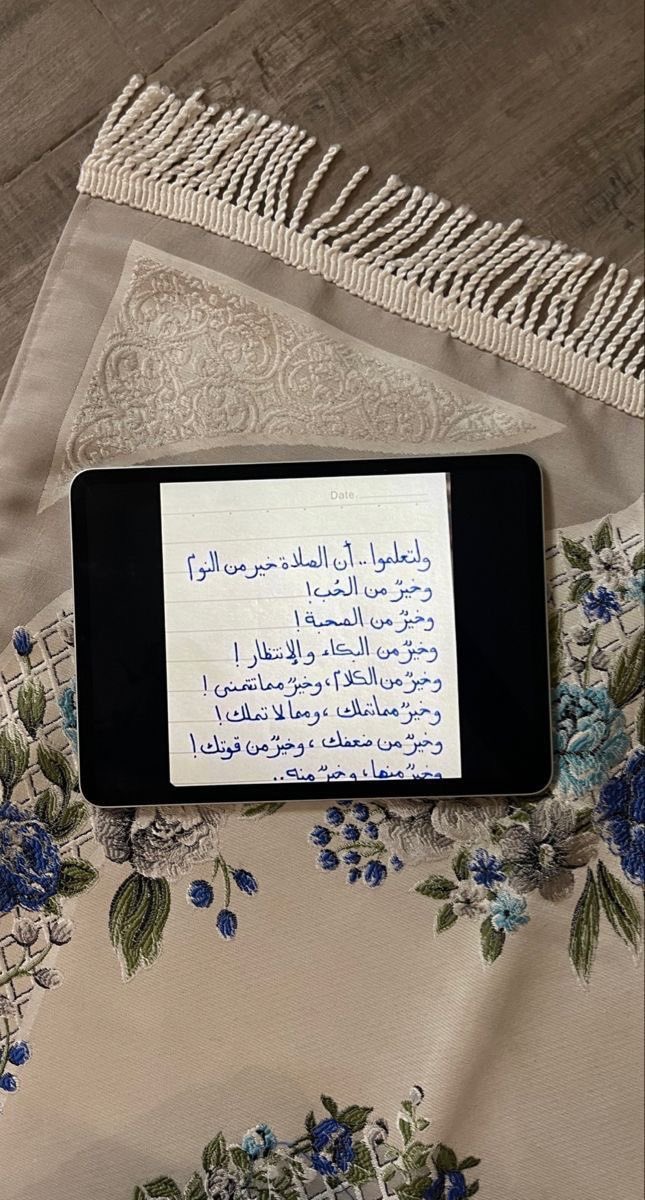 Date
ولتعلموا .. أن الصلاة خير من النوم
وخيرٌ من الحُب !
وخيرٌ من الصحبة !
وخيرٌ من البكاء والإنتظار !
وخيرٌ من الكلام ، وخيرٌ مما تتمنى !
وخيرٌ مما تملك ، ومما لا تملك !
وخيرٌ من ضعفك ، وخيرٌ من قوتك !
وخيرٌ منها ، وخيرٌ منه ..